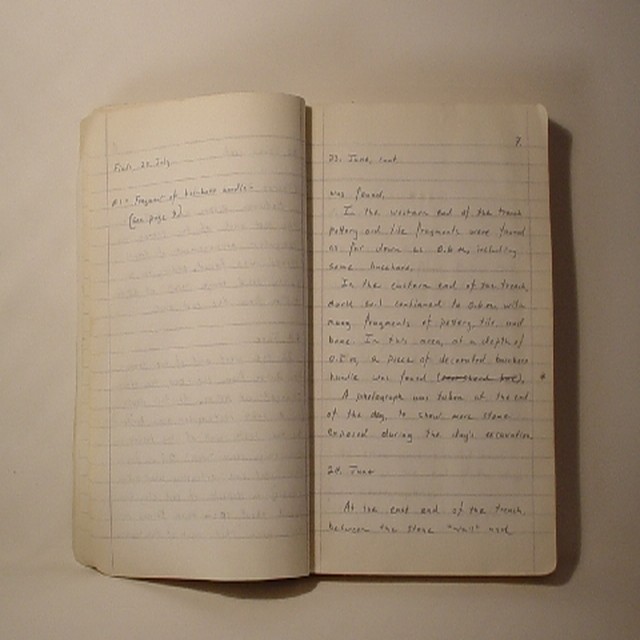 Finds 23 July
#1 = Fragment of bucchero handle -
(see page 8)
7.
23. June, cont.
was found.
In the western end of the trench
pottery and tile fragments were found
as far down as 0.60m, including
some bucchero.
In the eastern end of the trench,
continued to 0.60m with
many fragments of pottery, tile, and
bone. In this area, at a depth of
0.50m, a piece of decorated bucchero
handle was found
A photograph was taken at the end
of the day, to show more stone
exposed during the day's excavation.
24. June
At the east end of the trench,
between the stone "wall" and